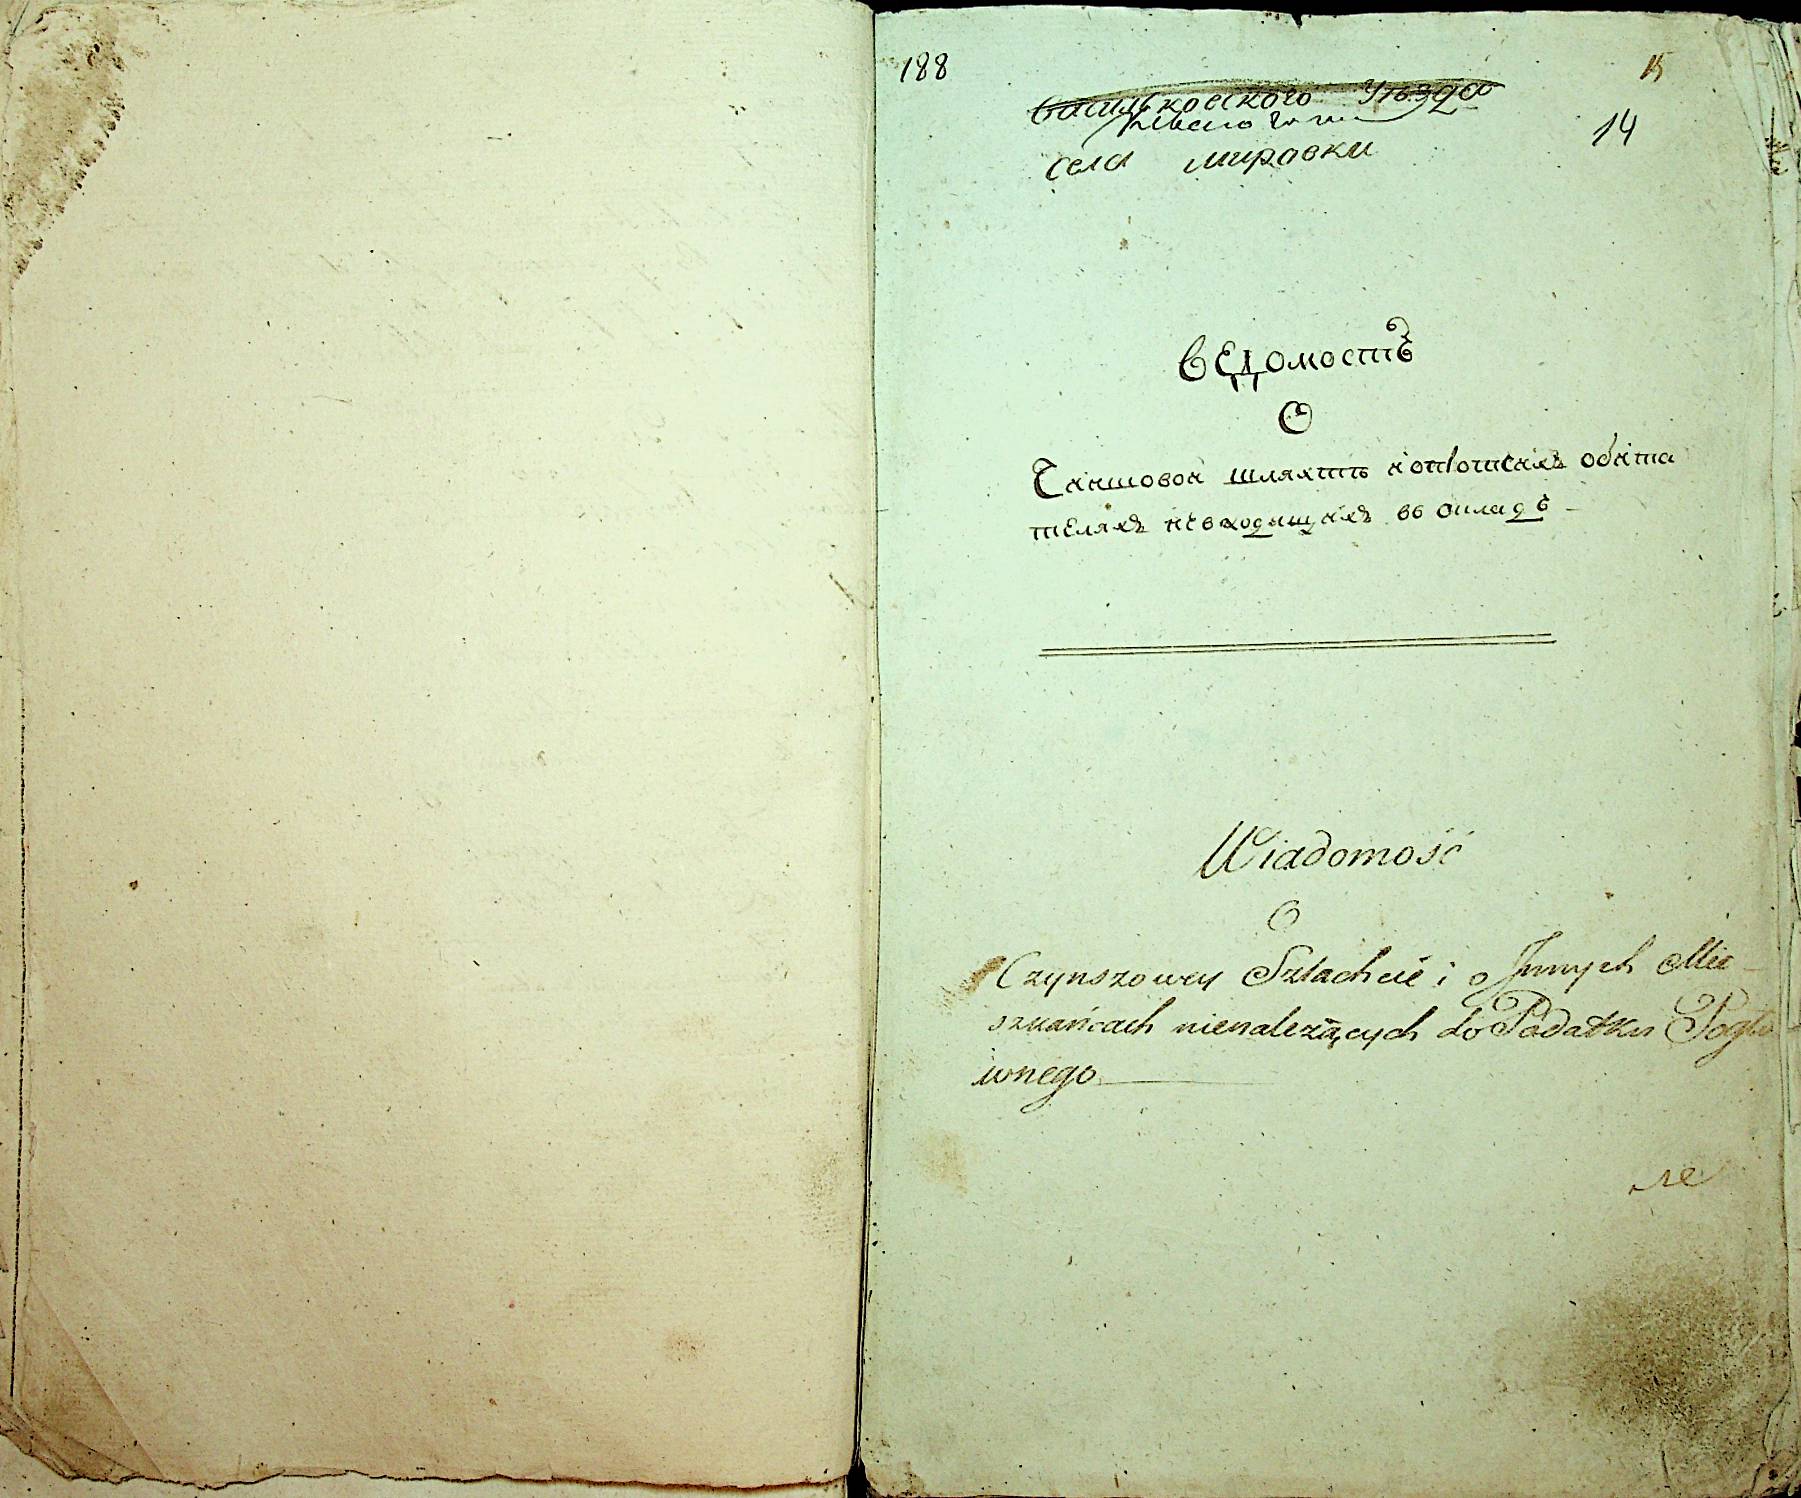 188
15
Васильковского Уѣзда
14
села мировки
вЕдомостъ
О
Чиншовой шляхтѣ
обита
телях невходящих въ окладъ
Wiadomość
O
Czynszowey Szlachcie i o Jnnych Mie-
szkańcach nienależących do Podatku Pogło
wnego